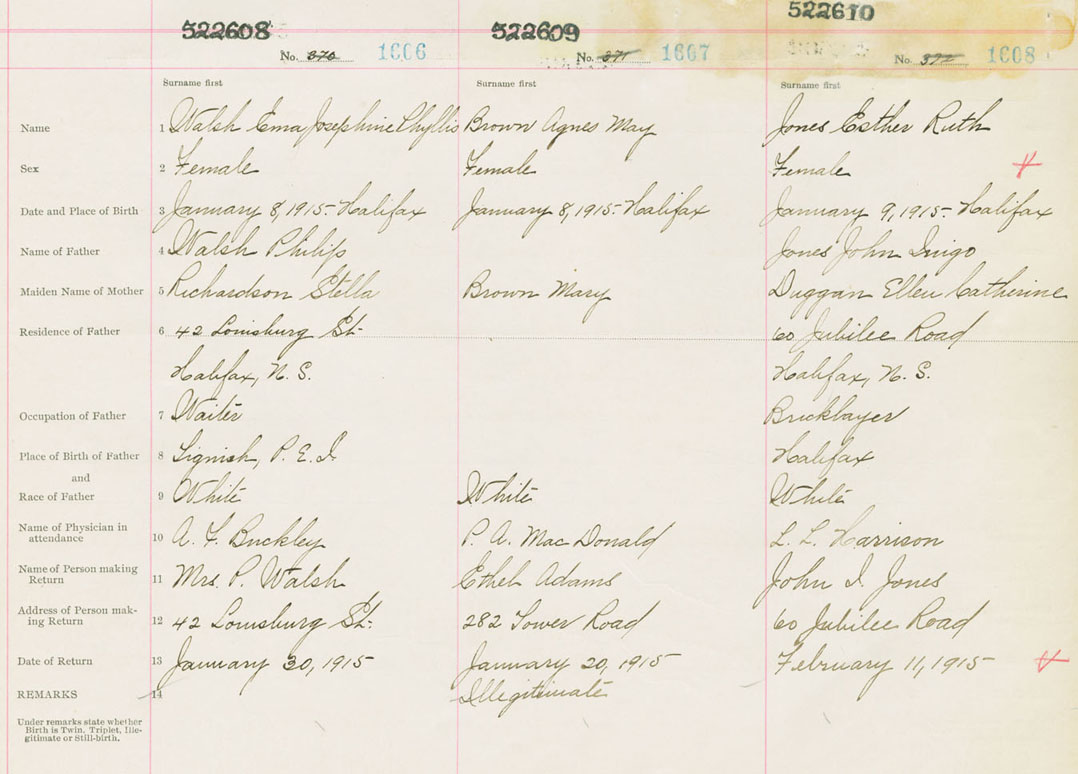 522608 522609 522610
No. 370 1606 No. 371 1607 No. 372 1608
Surname first Surname first Surname first
Name 1 Walsh Ema Josephine Phyllis Brown Agnes May Jones Esther Ruth
Sex 2 Female Female Female
Date and Place of Birth 3 January 8, 1915- Halifax January 8, 1915- Halifax January 9, 1915- Halifax
Name of Father 4 Walsh Philip Jones John Inigo
Maiden Name of Mother 5 Richardson Stella Brown Mary Duggan Ellen Catherine
Residence of Father 6 42 Louisburg St- 60 Jubilee Road
Halifax, N. S. Halifax, N. S.
Occupation of Father 7 Waiter Bricklayer
Place of Birth of Father 8 P. E. I. Halifax
and
Race of Father 9 White White White
Name of Physician in
attendance 10 A. F. Buckley P. A. Mac Donald L. L. Harrison
Name of Person making
Return 11 Mrs. P. Walsh Ethel Adams John I. Jones
Address of Person mak-
ing Return 12 42 Louisburg St- 282 Tower Road 60 Jubilee Road
Date of Return 13 January 30, 1915 January 20, 1915 February 11, 1915
REMARKS 14 Illegitimate
Under remarks state whether
Birth is Twin. Triplet, Ille-
gitimate or Still-birth.